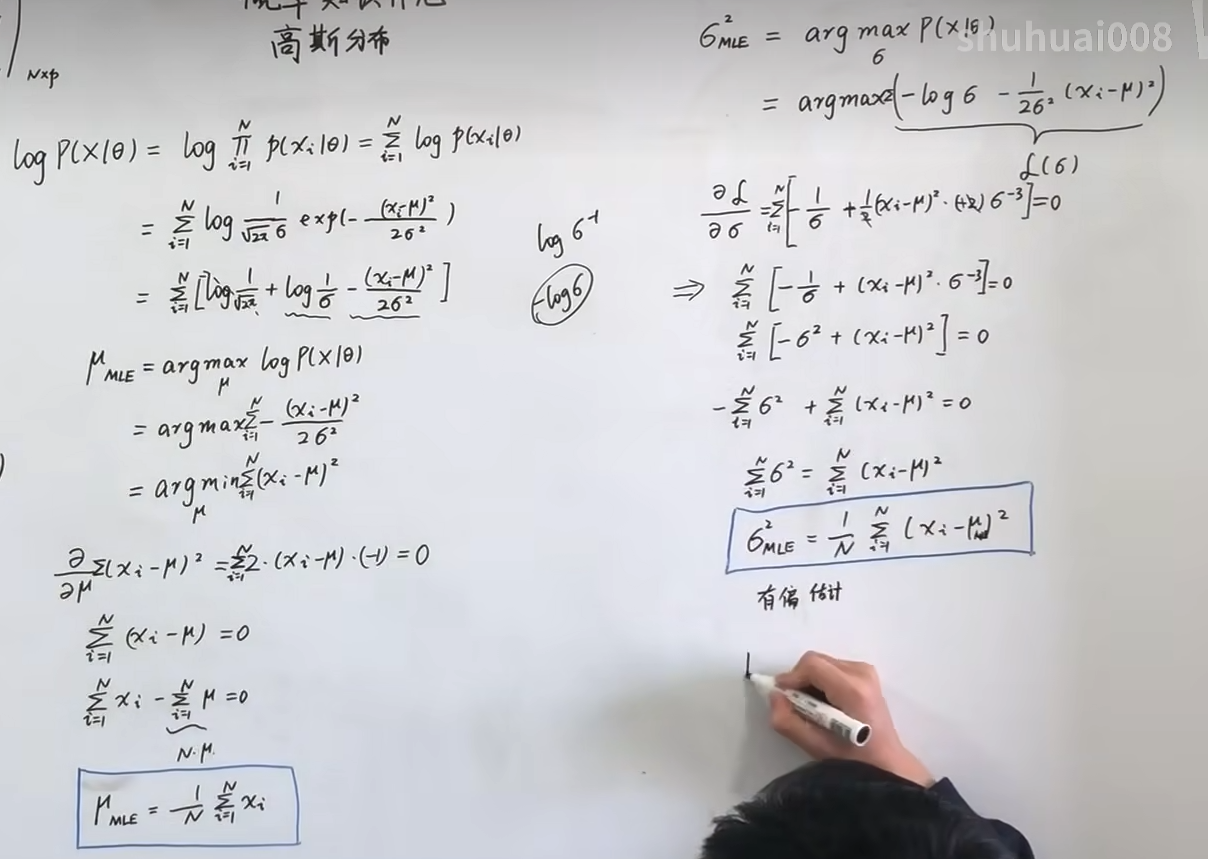 高斯分布
N×p
log P(X|θ) = log ∏_{i=1}^{N} p(x_i|θ) = ∑_{i=1}^{N} log p(x_i|θ)
= ∑_{i=1}^{N} log 1/(√2π σ) exp(-(x_i-μ)²/2σ²)
= ∑_{i=1}^{N} [log 1/√2π + log 1/σ - (x_i-μ)²/2σ²]
log σ⁻¹
-log σ
μ_MLE = argmax_μ log P(X|θ)
= argmax ∑_{i=1}^{N} - (x_i-μ)²/2σ²
= argmin_μ ∑_{i=1}^{N} (x_i-μ)²
∂/∂μ ∑(x_i-μ)² = ∑_{i=1}^{N} 2·(x_i-μ)·(-1) = 0
∑_{i=1}^{N} (x_i-μ) = 0
∑_{i=1}^{N} x_i - ∑_{i=1}^{N} μ = 0
N·μ.
μ_MLE = 1/N ∑_{i=1}^{N} x_i
shuhuai008
σ²_MLE = argmax_σ P(X|θ)
= argmax ∑(-log σ - 1/2σ² (x_i-μ)²)
ℒ(σ)
∂ℒ/∂σ = ∑_{i=1}^{N} [-1/σ + 1/2 (x_i-μ)²·(+2) σ⁻³] = 0
⇒ ∑_{i=1}^{N} [-1/σ + (x_i-μ)²·σ⁻³] = 0
∑_{i=1}^{N} [-σ² + (x_i-μ)²] = 0
-∑_{i=1}^{N} σ² + ∑_{i=1}^{N} (x_i-μ)² = 0
∑_{i=1}^{N} σ² = ∑_{i=1}^{N} (x_i-μ)²
σ²_MLE = 1/N ∑_{i=1}^{N} (x_i-μ)²
有偏估计